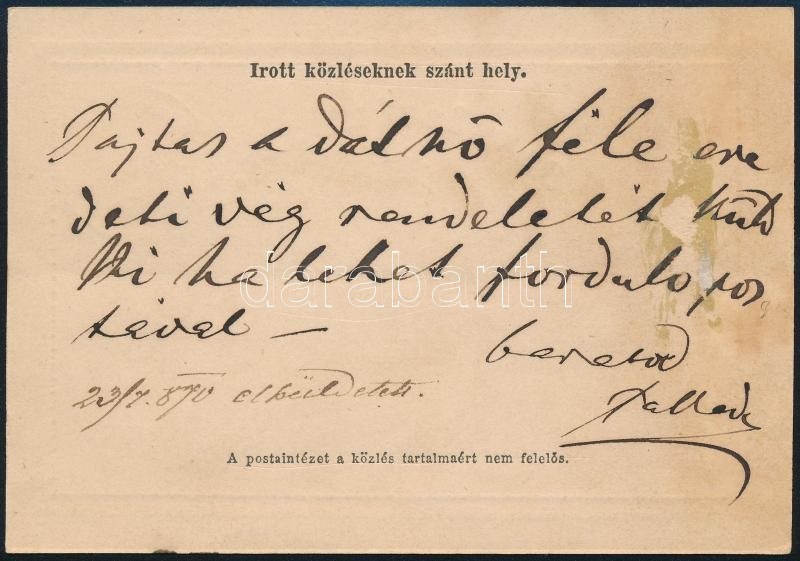 Irott közléseknek szánt hely.
Pajtas a Dálnō féle ere
deti vég rendeletét küld
ki ha lehet forduló pos
tával —
baratod
23/7. 870 elküldetett.
A postaintézet a közlés tartalmaért nem felelős.
darabanth.com